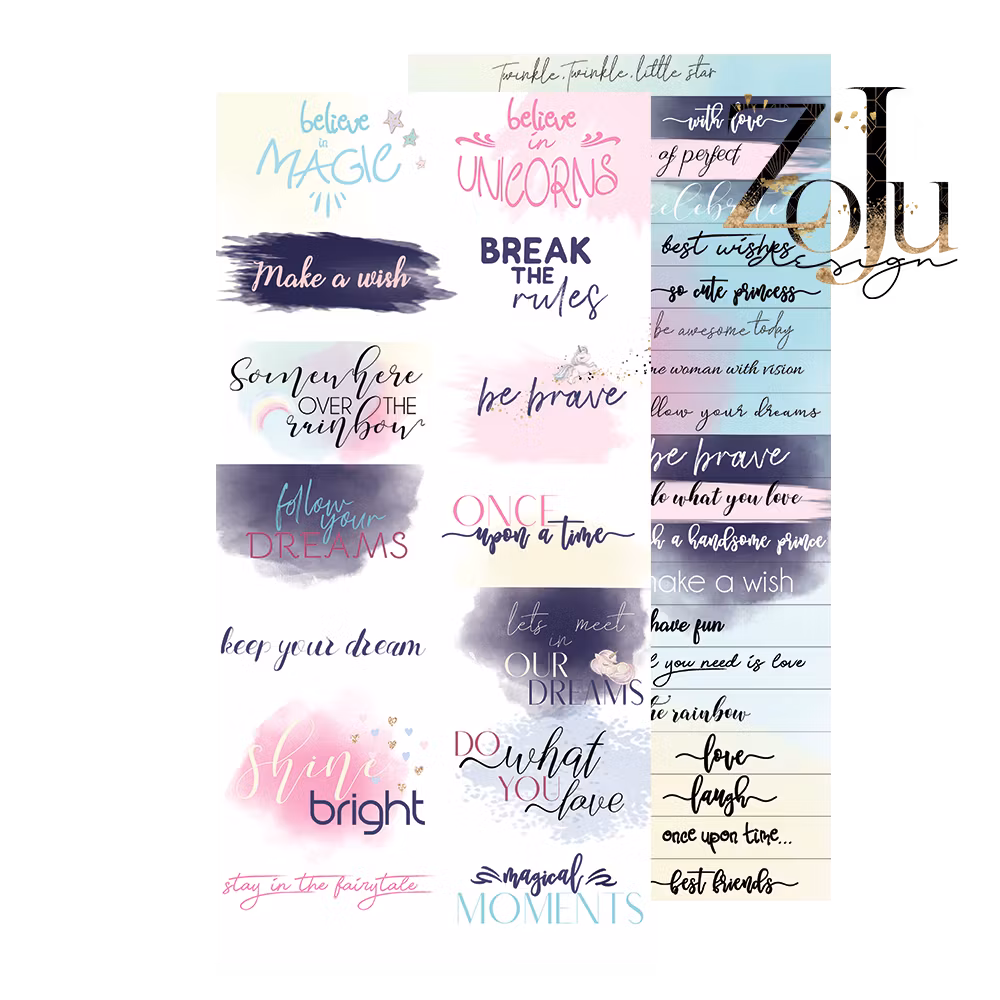 Twinkle, Twinkle, little star
believe
in
MAGIC
believe
in
UNICORNS
Make a wish
BREAK
THE
rules
Somewhere
OVER THE
rainbow
be brave
follow
your
DREAMS
ONCE
upon a time
keep your dream
lets meet
in
OUR
DREAMS
shine
bright
DO what
YOU love
stay in the fairytale
magical
MOMENTS
with love
of perfect
celebrate
best wishes
so cute princess
be awesome today
woman with vision
your dreams
be brave
do what you love
a handsome prince
make a wish
have fun
you need is love
the rainbow
love
laugh
once upon time...
best friends
ZoJu
design